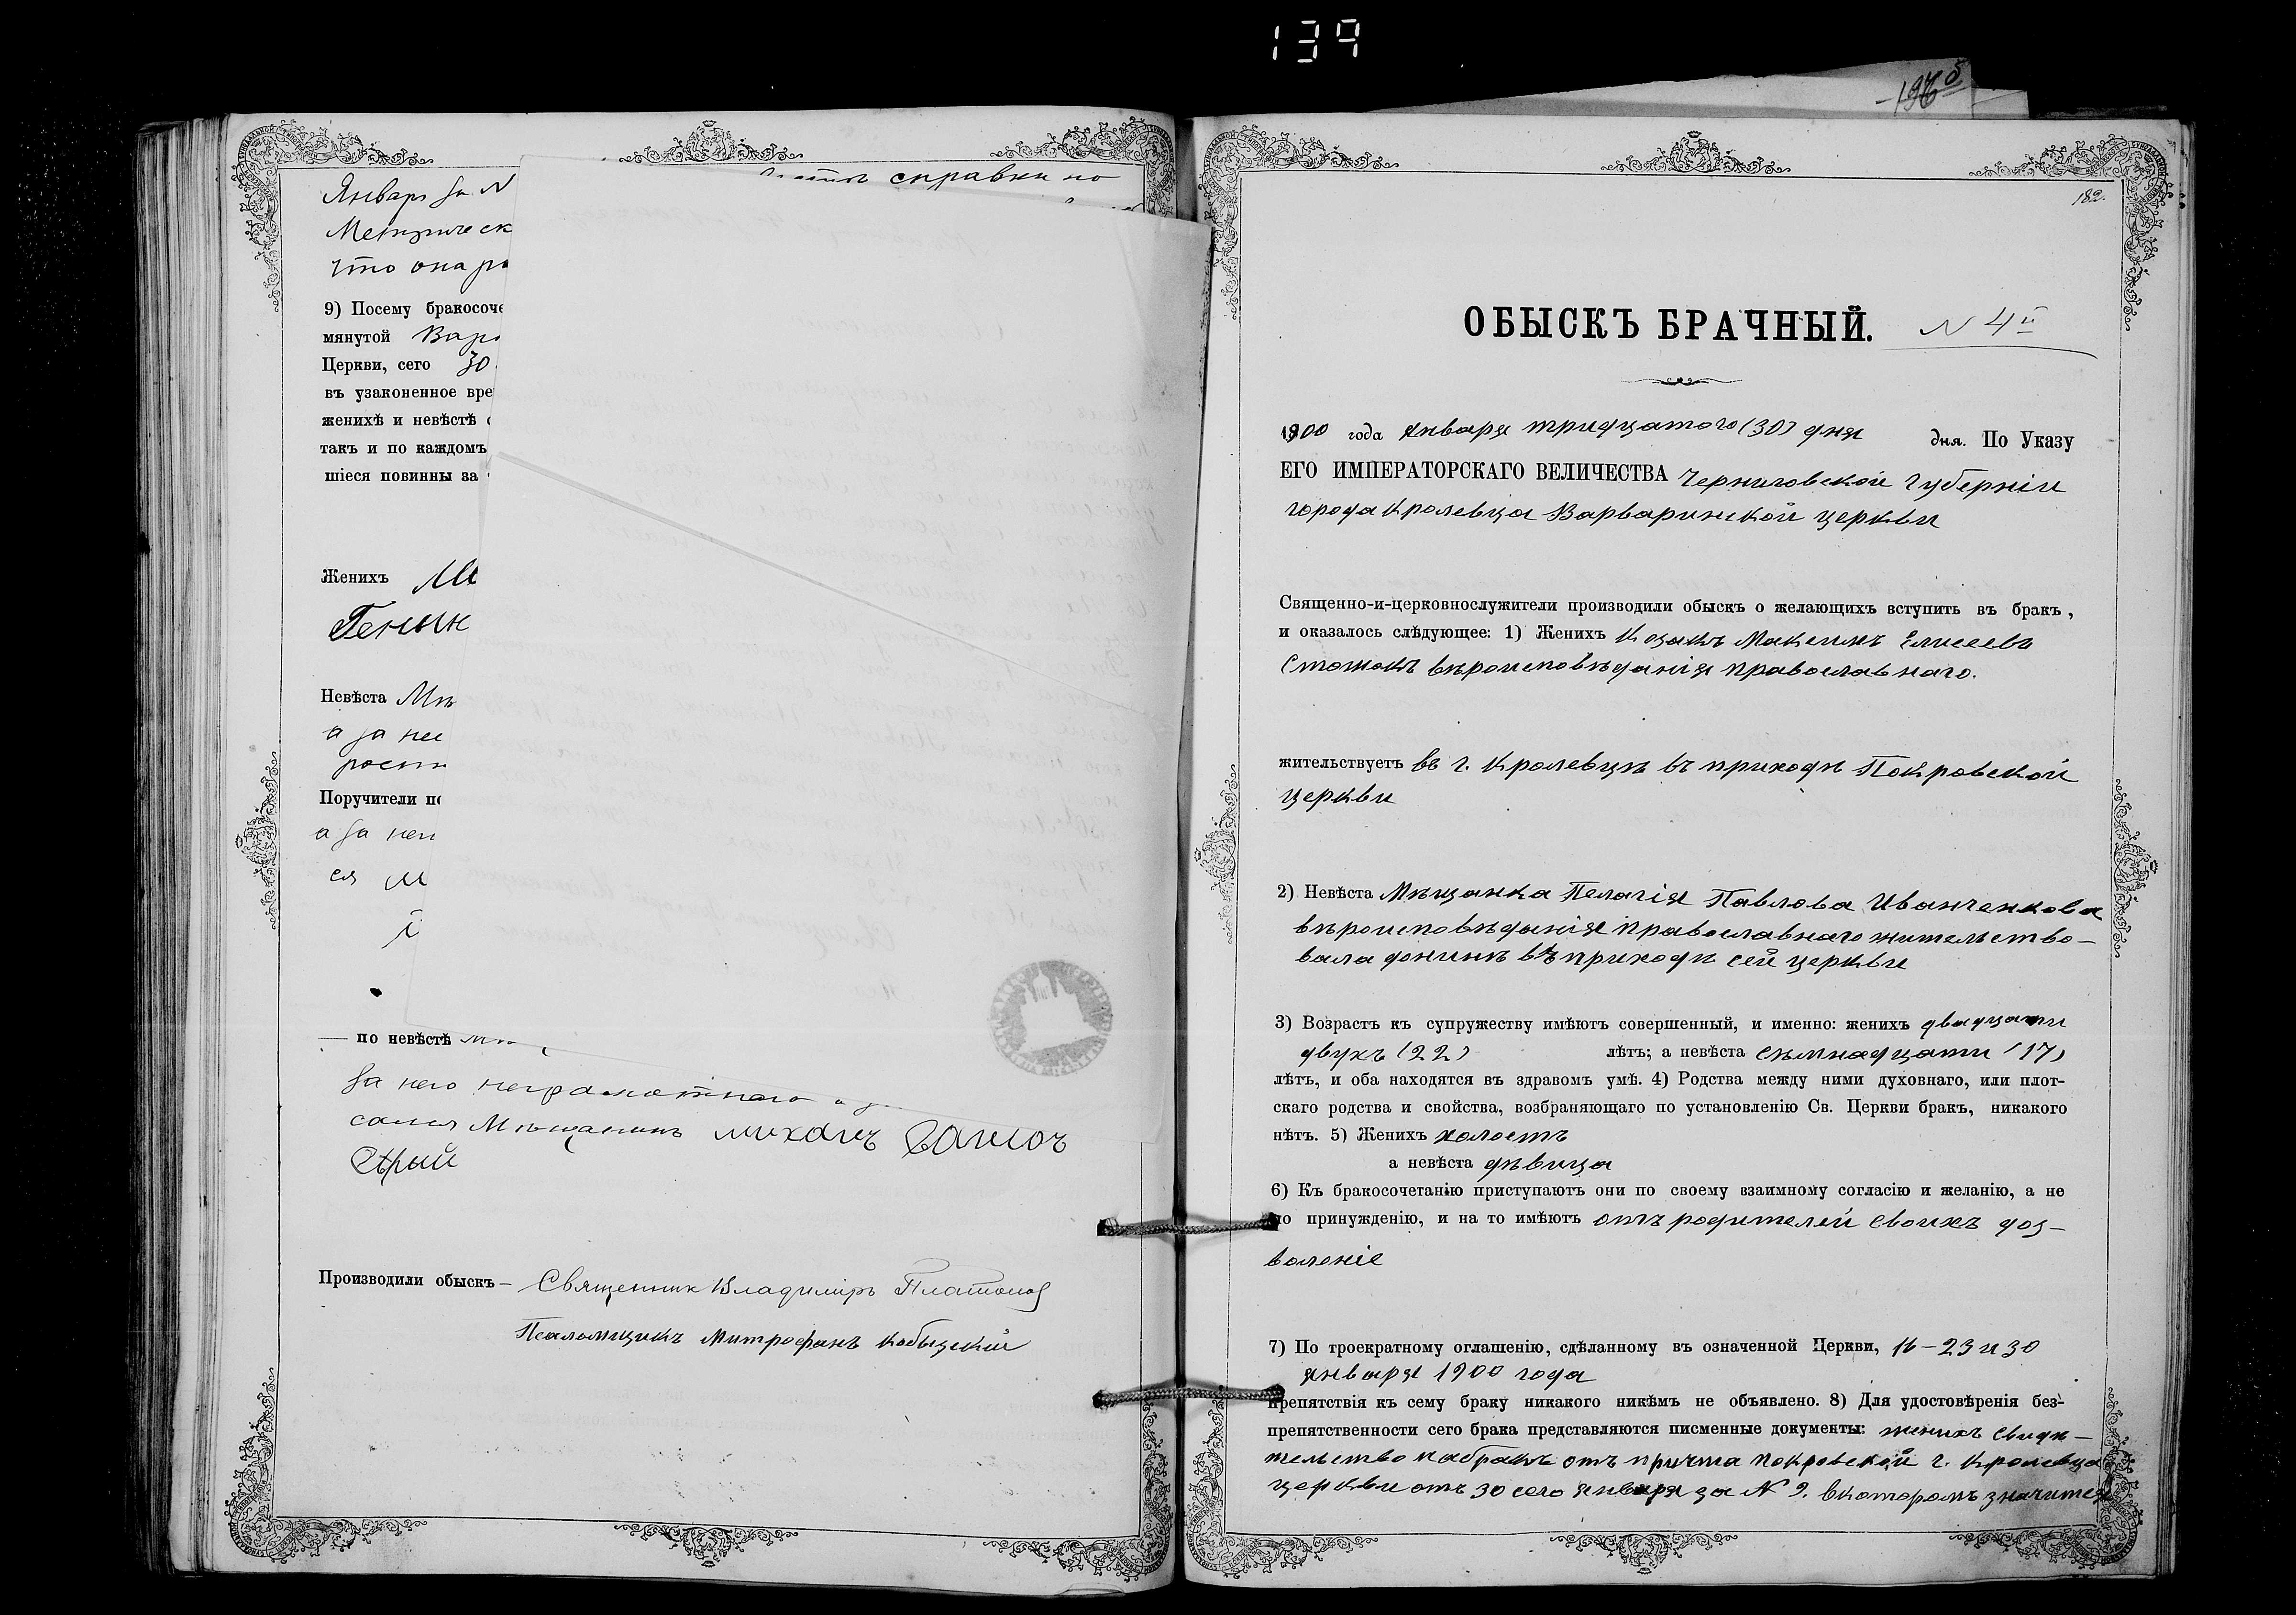 139
Январь за N
Метрическ
что она ро
9) Посему бракосоче
мянутой Варв
Церкви, сего 30
въ узаконенное вре
женихѣ и невѣстѣ с
такъ и по каждомъ
шіеся повинны за
Женихъ
Невѣста
а за нее
Поручители по
а за нен
ся
справки по
по невѣстѣ
за него неграмотнаго
сался Мѣщанинъ михаилъ
Производили обыскъ — Священникъ Владиміръ Платонов
Псаломщикъ Митрофанъ Кобыцкій
182.
ОБЫСКЪ БРАЧНЫЙ. N 4й
1900 года января тридцатого (30) дня дня. По Указу
ЕГО ИМПЕРАТОРСКАГО ВЕЛИЧЕСТВА Черниговской Губерніи
города Кролевца Варваринской церкви
Священно-и-церковнослужители производили обыскъ о желающихъ вступить въ бракъ,
и оказалось слѣдующее: 1) Женихъ Козакъ Максимъ Елисеевъ
Стожокъ вѣроисповѣданія православнаго.
жительствуетъ въ г. Кролевцѣ въ приходѣ Покровской
церкви
2) Невѣста Мѣщанка Пелагія Павлова Иванченкова
вѣроисповѣданія православнаго жительство-
вала донинѣ въ приходѣ сей церкви
3) Возрастъ къ супружеству имѣютъ совершенный, и именно: женихъ двадцати
двухъ (22) лѣтъ; а невѣста сѣмнадцати (17)
лѣтъ, и оба находятся въ здравомъ умѣ. 4) Родства между ними духовнаго, или плот-
скаго родства и свойства, возбраняющаго по установленію Св. Церкви бракъ, никакого
нѣтъ. 5) Женихъ холостъ
а невѣста дѣвица
6) Къ бракосочетанію приступаютъ они по своему взаимному согласію и желанію, а не
по принужденію, и на то имѣютъ отъ родителей своихъ доз-
воленіе
7) По троекратному оглашенію, сдѣланному въ означенной Церкви, 16 – 23 и 30
января 1900 года
препятствія къ сему браку никакого никѣмъ не объявлено. 8) Для удостовѣренія без-
препятственности сего брака представляются писменные документы: женихъ свидѣ-
тельство на бракъ отъ причта Покровской г. Кролевца
церкви отъ 30 сего января за N 9. вкоторомъ значится